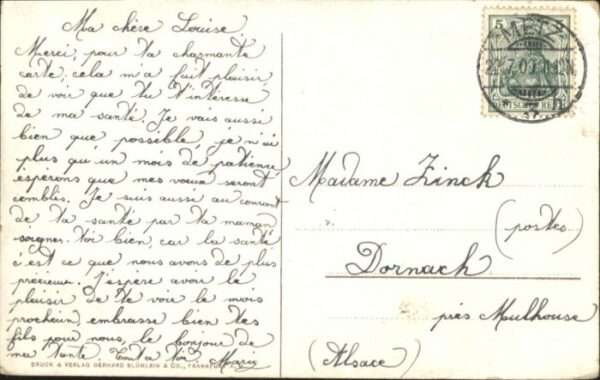 Ma chère Louise,
Merci, pour ta charmante
carte; cela m'a fait plaisir
de voir que tu t'intéresse
de ma santé. Je vais aussi
bien que possible, je n'ai
plus qu'un mois de patience,
espérons que mes vœux seront
comblés. Je suis aussi au courant
de ta santé par ta maman
soigner toi bien, car la santé
c'est ce que nous avons de plus
précieux. J'espère avoir le
plaisir de te voir le mois
prochain, embrasse bien tes
fils pour nous, le bonjour de
ma tante. Tout à toi
Marie
DRUCK & VERLAG GERHARD BLÜMLEIN & CO., FRANKFURT
5
METZ
DEUTSCHES REICH
Madame Zinck
(postes)
Dornach
près Mulhouse
(Alsace)